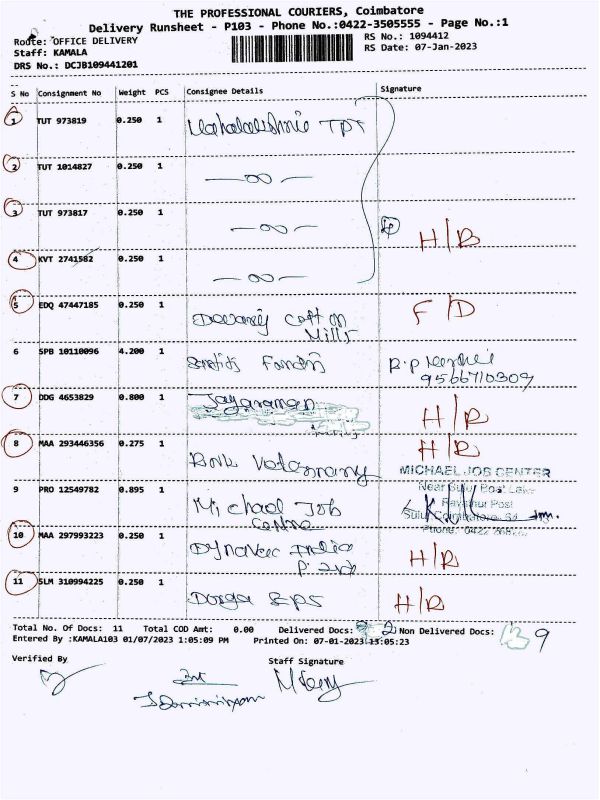 THE PROFESSIONAL COURIERS, Coimbatore
Delivery Runsheet - P103 - Phone No.:0422-3505555 - Page No.:1
Route: OFFICE DELIVERY RS No.: 1094412
Staff: KAMALA RS Date: 07-Jan-2023
DRS No.: DCJB109441201
S No Consignment No Weight PCS Consignee Details Signature
1 TUT 973819 0.250 1 Mahalakshmi TPT
2 TUT 1014827 0.250 1
3 TUT 973817 0.250 1 H/B
4 KVT 2741582 0.250 1
5 EDQ 47447185 0.250 1 Cotton Mills F/D
6 SPB 10110096 4.200 1 R.P 9566710309
7 DDG 4653829 0.800 1 Jayaraman H/R
8 MAA 293446356 0.275 1 H/R
MICHAEL JOB CENTER
Near Sulur Post
9 PRO 12549782 0.895 1 Michael Job Centre
Post
Sulur Coimbatore
Phone: 0422
10 MAA 297993223 0.250 1 India P. Ltd H/R
11 SLM 310994225 0.250 1 Durga H/R
Total No. Of Docs: 11 Total COD Amt: 0.00 Delivered Docs: 2 Non Delivered Docs: 9
Entered By :KAMALA103 01/07/2023 1:05:09 PM Printed On: 07-01-2023 13:05:23
Verified By Staff Signature